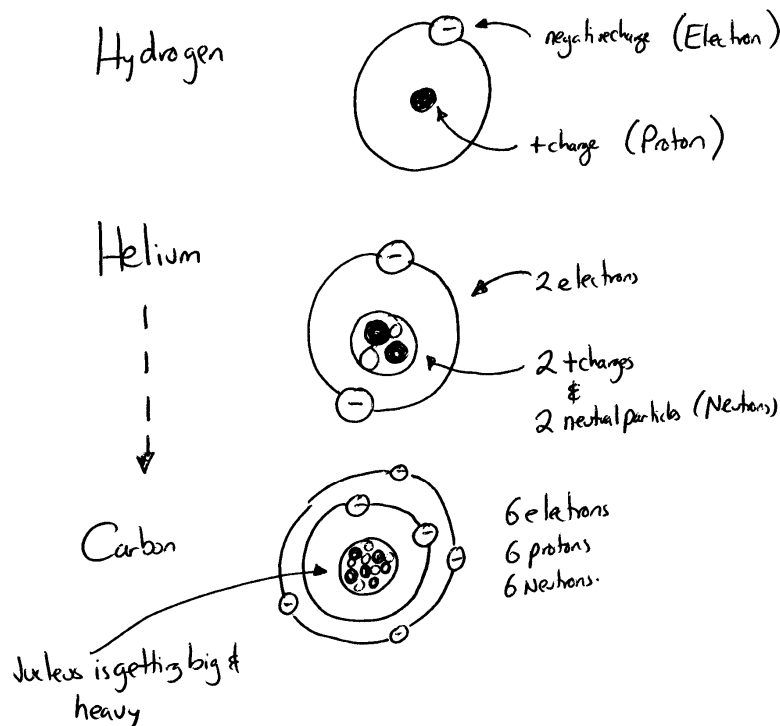 Hydrogen
negativecharge (Electron)
+charge (Proton)
Helium
2 electrons
2 +charges
&
2 neutral particles (Neutrons)
Carbon
6 eletrons
6 protons
6 Neutrons.
Nucleus is getting big &
heavy